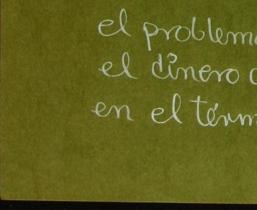 el problema
el dinero
en el térm